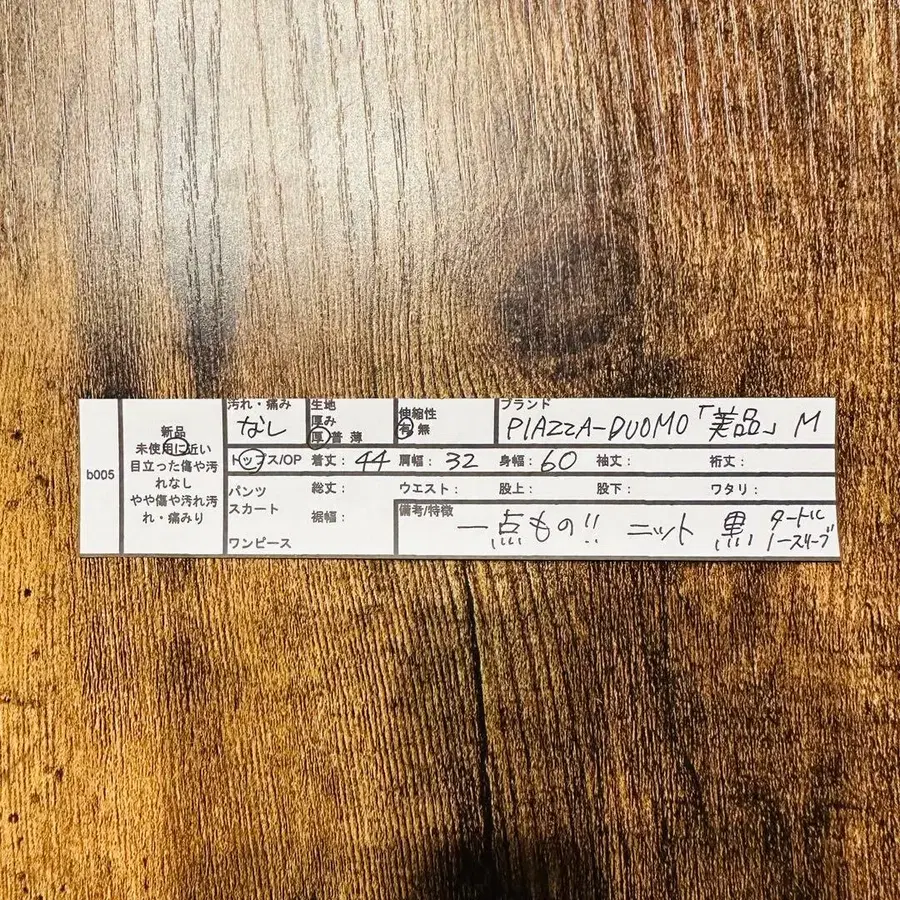 b005
新品
未使用に近い
目立った傷や汚
れなし
やや傷や汚れ汚
れ・痛みり
汚れ・痛み
なし
生地
厚み
厚 普 薄
伸縮性
有 無
ブランド
PIAZZA-DUOMO「美品」 M
トップス/OP 着丈： 44 肩幅： 32 身幅： 60 袖丈： 裄丈：
パンツ
スカート
ワンピース
総丈： ウエスト： 股上： 股下： ワタリ：
裾幅：
備考/特徴
一点もの!! ニット 黒 タートル
ノースリーブ